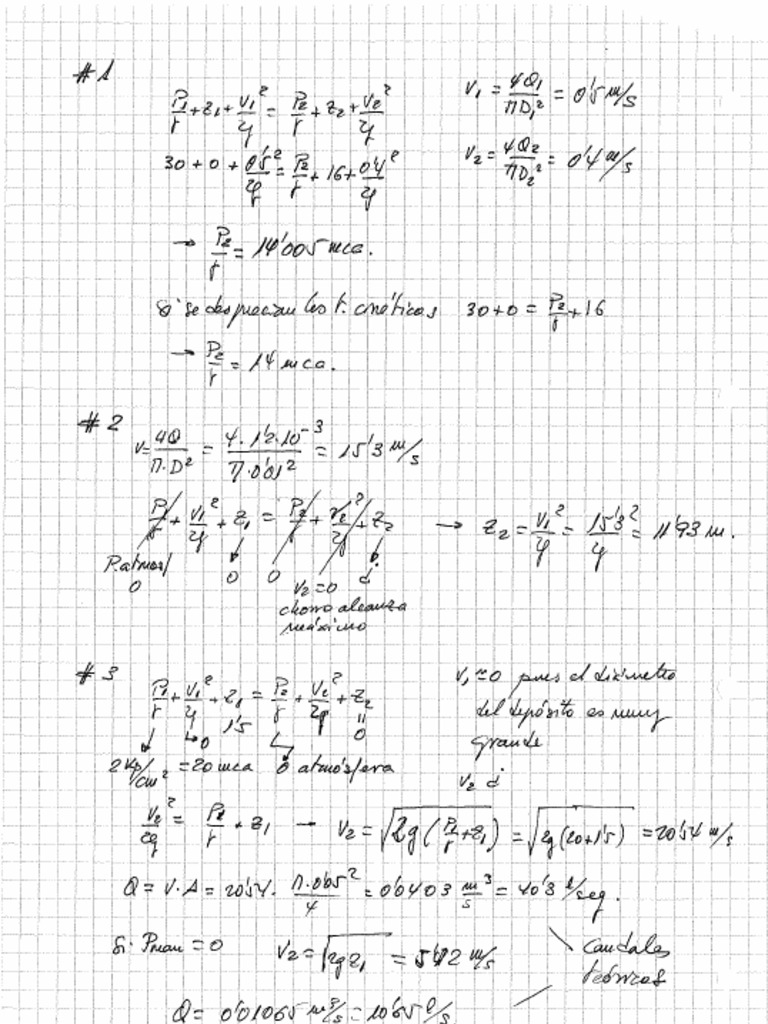 #1
P1/γ + z1 + v1²/2g = P2/γ + z2 + v2²/2g     v1 = 4Q1/πD1² = 0'5 m/s
30 + 0 + 0'5²/2g = P2/γ + 16 + 0'4²/2g     v2 = 4Q2/πD2² = 0'4 m/s
→ P2/γ = 14'005 mca.
Si se desprecian los t. cinéticos   30 + 0 = P2/γ + 16
→ P2/γ = 14 mca.
#2
v = 4Q/π.D² = 4.1'2.10⁻³/π.0'01² = 15'3 m/s
P1/γ + v1²/2g + z1 = P2/γ + v2²/2g + z2 → z2 = v1²/2g = 15'3²/2g = 11'93 m.
P.atmosf   0   0   v2 = 0   ¿
0   chorro alcanza
máximo
#3
P1/γ + v1²/2g + z1 = P2/γ + v2²/2g + z2     v1 ≈ 0 pues el diámetro
0   1'5   0     del depósito es muy
2 kp/cm² = 20 mca   0 atmósfera     grande
v2 ¿
v2²/2g = P1/γ + z1 → v2 = √2g(P1/γ + z1) = √2g(20+1'5) = 20'54 m/s
Q = V.A = 20'54 . π.0'05²/4 = 0'0403 m³/s = 40'3 l/seg.
Si Pman = 0   v2 = √2gz1 = 5'42 m/s     Caudales
teóricos
Q = 0'01065 m³/s = 10'65 l/s